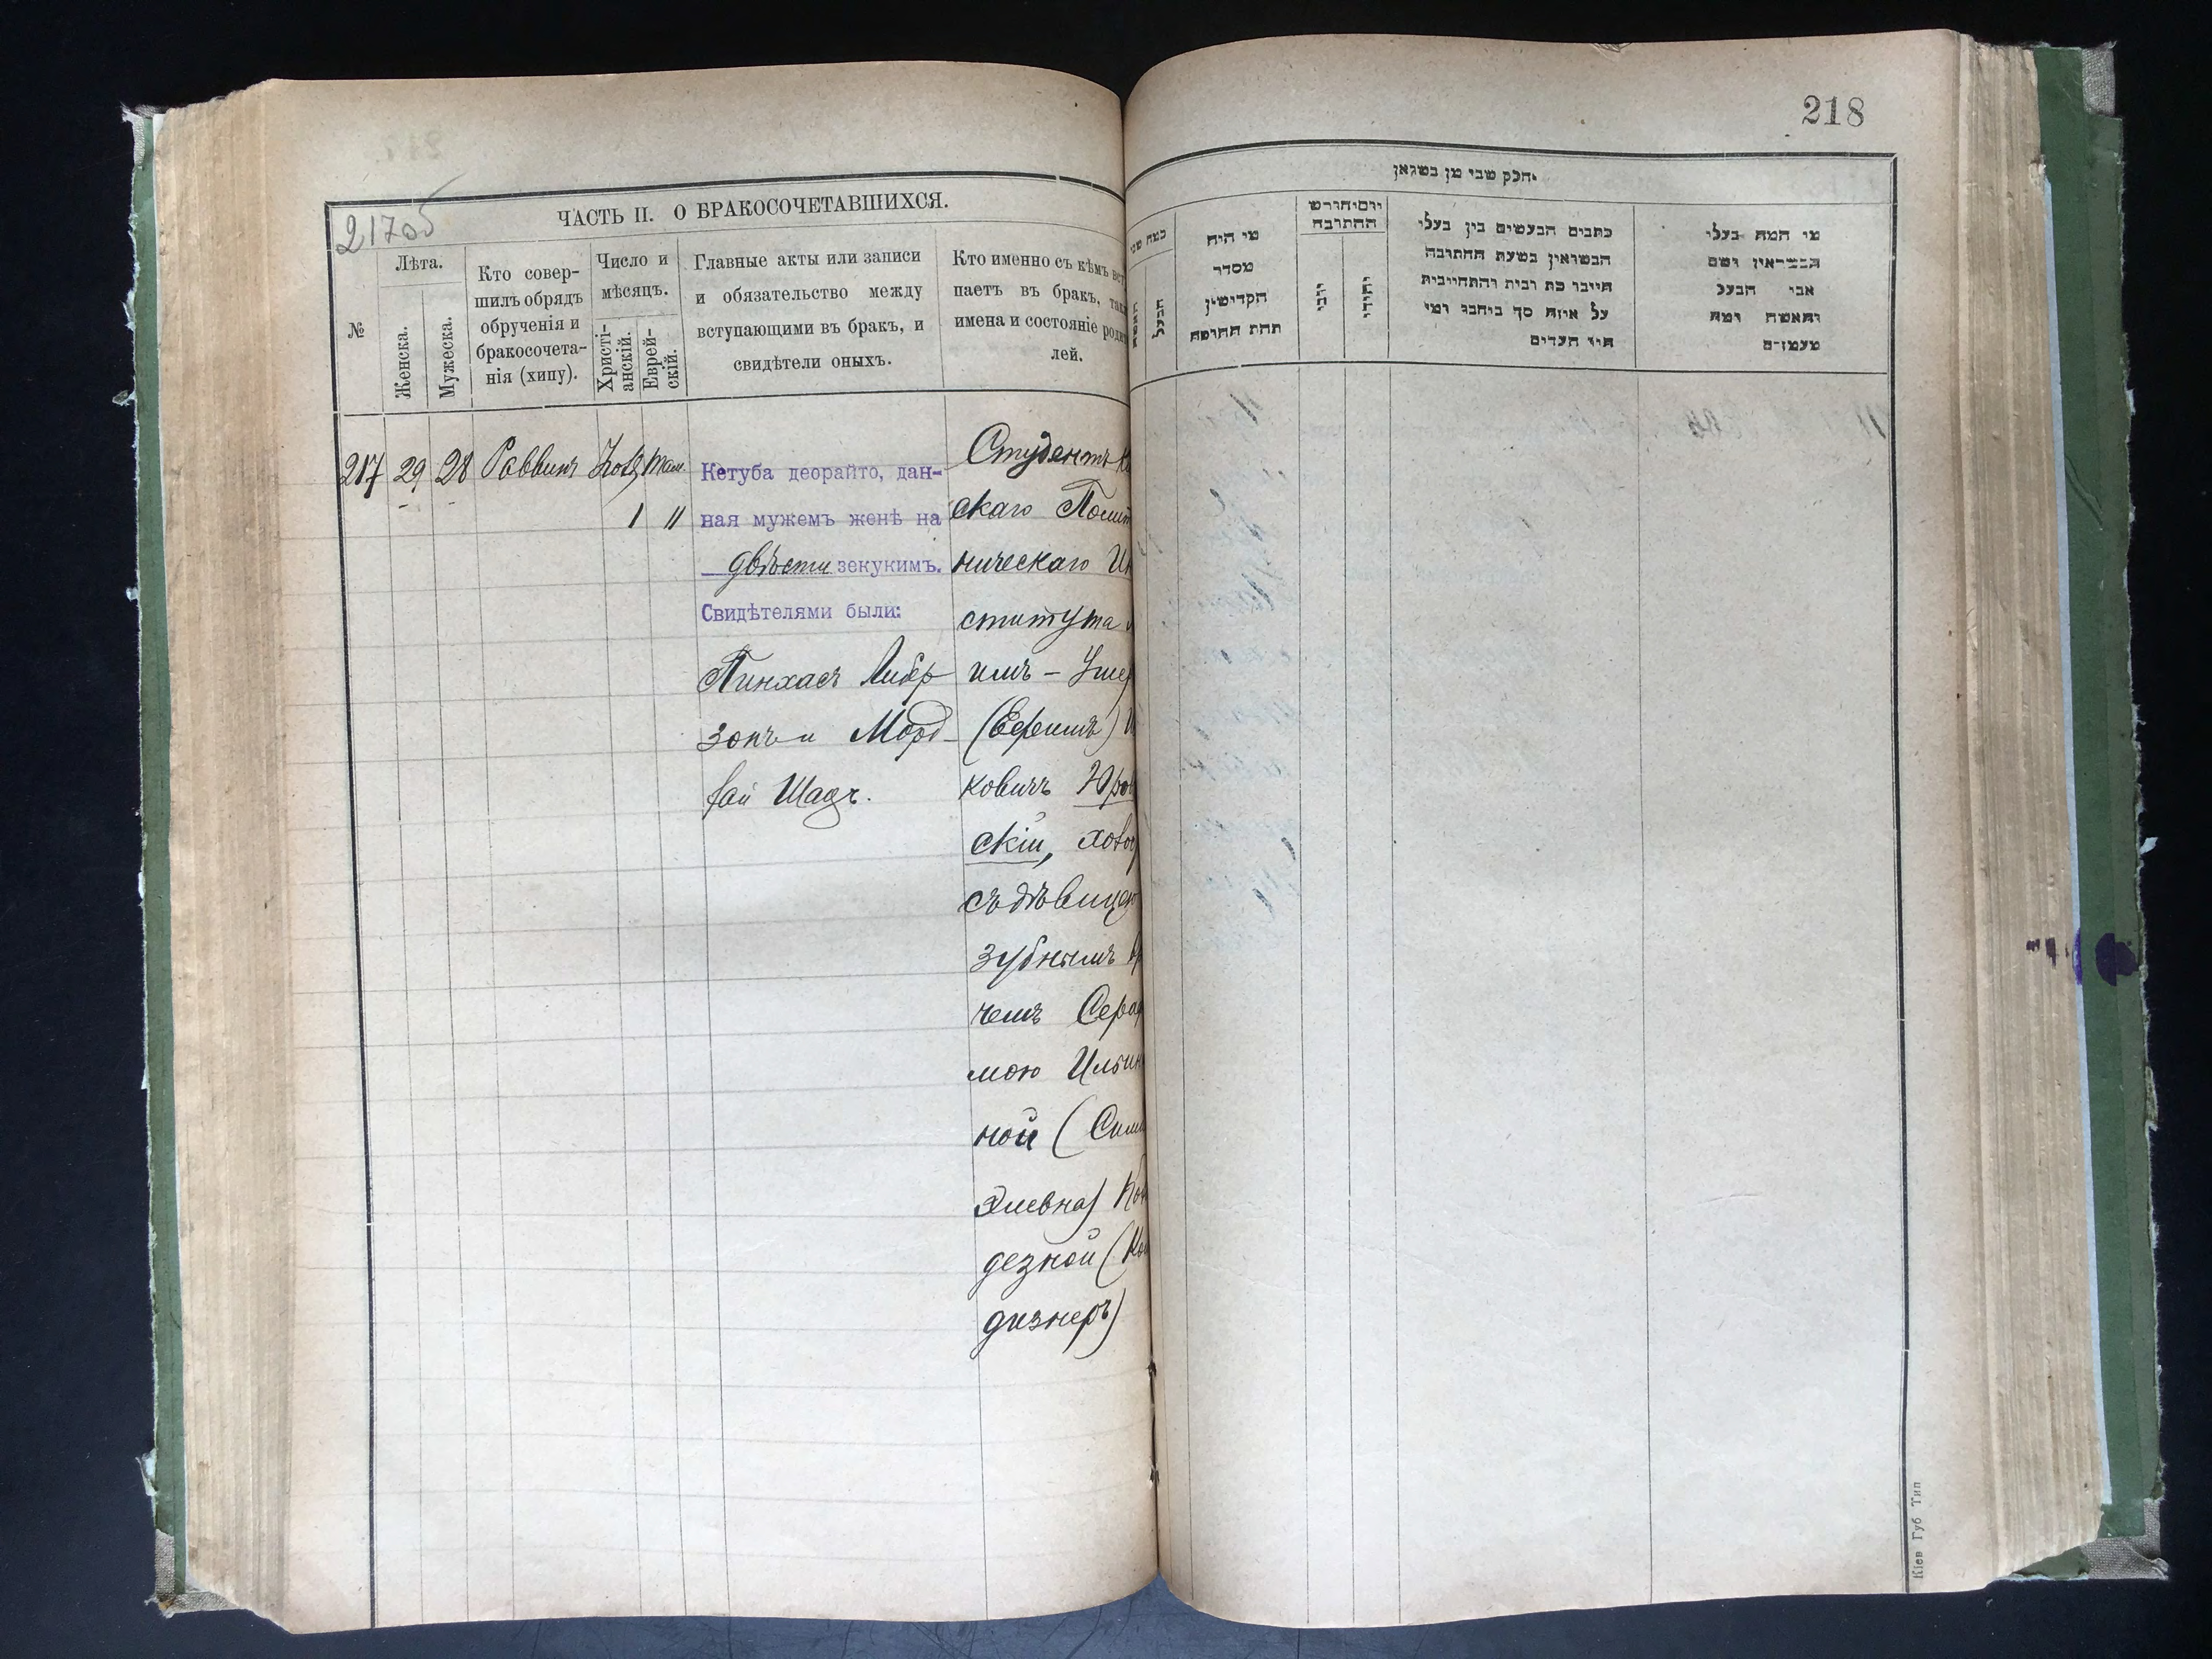 217об
ЧАСТЬ II. О БРАКОСОЧЕТАВШИХСЯ.
№
Лѣта.
Женска.
Мужеска.
Кто совер-
шилъ обрядъ
обрученія и
бракосочета-
нія (хипу).
Число и
мѣсяцъ.
Христі-
анскій.
Еврей-
скій.
Главные акты или записи
и обязательство между
вступающими въ бракъ, и
свидѣтели оныхъ.
Кто именно съ кѣмъ вст
паетъ въ бракъ, так
имена и состояніе роди
лей.
217 29 28 Раввинъ
1 11
Кетуба деорайто, дан-
ная мужемъ женѣ на
двѣсти зекукимъ.
Свидѣтелями были:
Пинхасъ Либер
зонъ и Морд-
хай Шацъ.
Студентъ
скаго Полит
ническаго Ин
ститута
имъ - Ушер
(Ефимъ) И
ковичъ Юров
скій, холос
съ дѣвицею
зубнымъ вр
чемъ Сераф
мою Ильин
ной (Сима
Элевна) Ко
дезной (Ко
дизнеръ)
218
חלק שני מן נשואין
כמה שני
האשה
הבעל
מי היה
מסדר
הקדישין
תחת החופה
יום וחודש
החתונה
נוצרי
יהודי
כתבים הנעשים בין בעלי
הנשואין בשעת החתונה
חייבו כת רבית והתחייבות
על איזה סך ביחבו ומי
היו העדים
מי המה בעלי
הנשואין ושם
אבי הבעל
והאשה ומה
מעמדם
Кіев Губ Тип